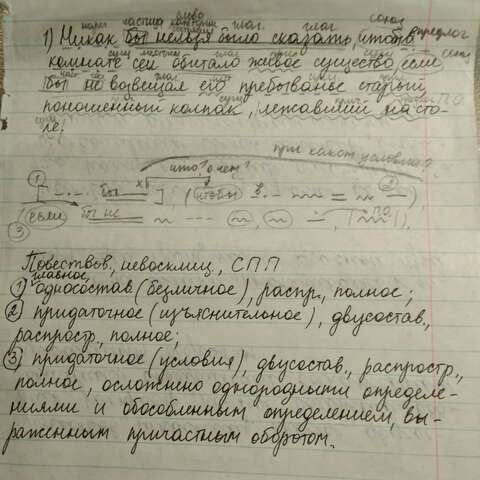 нареч. частица категория глаг. глаг. союз
1) Никак бы нельзя было сказать, чтобы в предлог
комнате сей обитало живое существо, если
бы не возвещал его пребыванье старый,
поношенный колпак, лежавший на сто-
ле.
при каком условии?
что? о чем?
1 [ -·- бы ], (чтобы в 2),
(если бы не П.О.).
3
Повествов., невосклиц., СПП
главное,
① односостав (безличное), распр., полное;
② придаточное (изъяснительное), двусостав.,
распростр., полное;
③ придаточное (условия), двусостав., распростр.,
полное, осложнено однородными определе-
ниями и обособленным определением, вы-
раженным причастным оборотом.